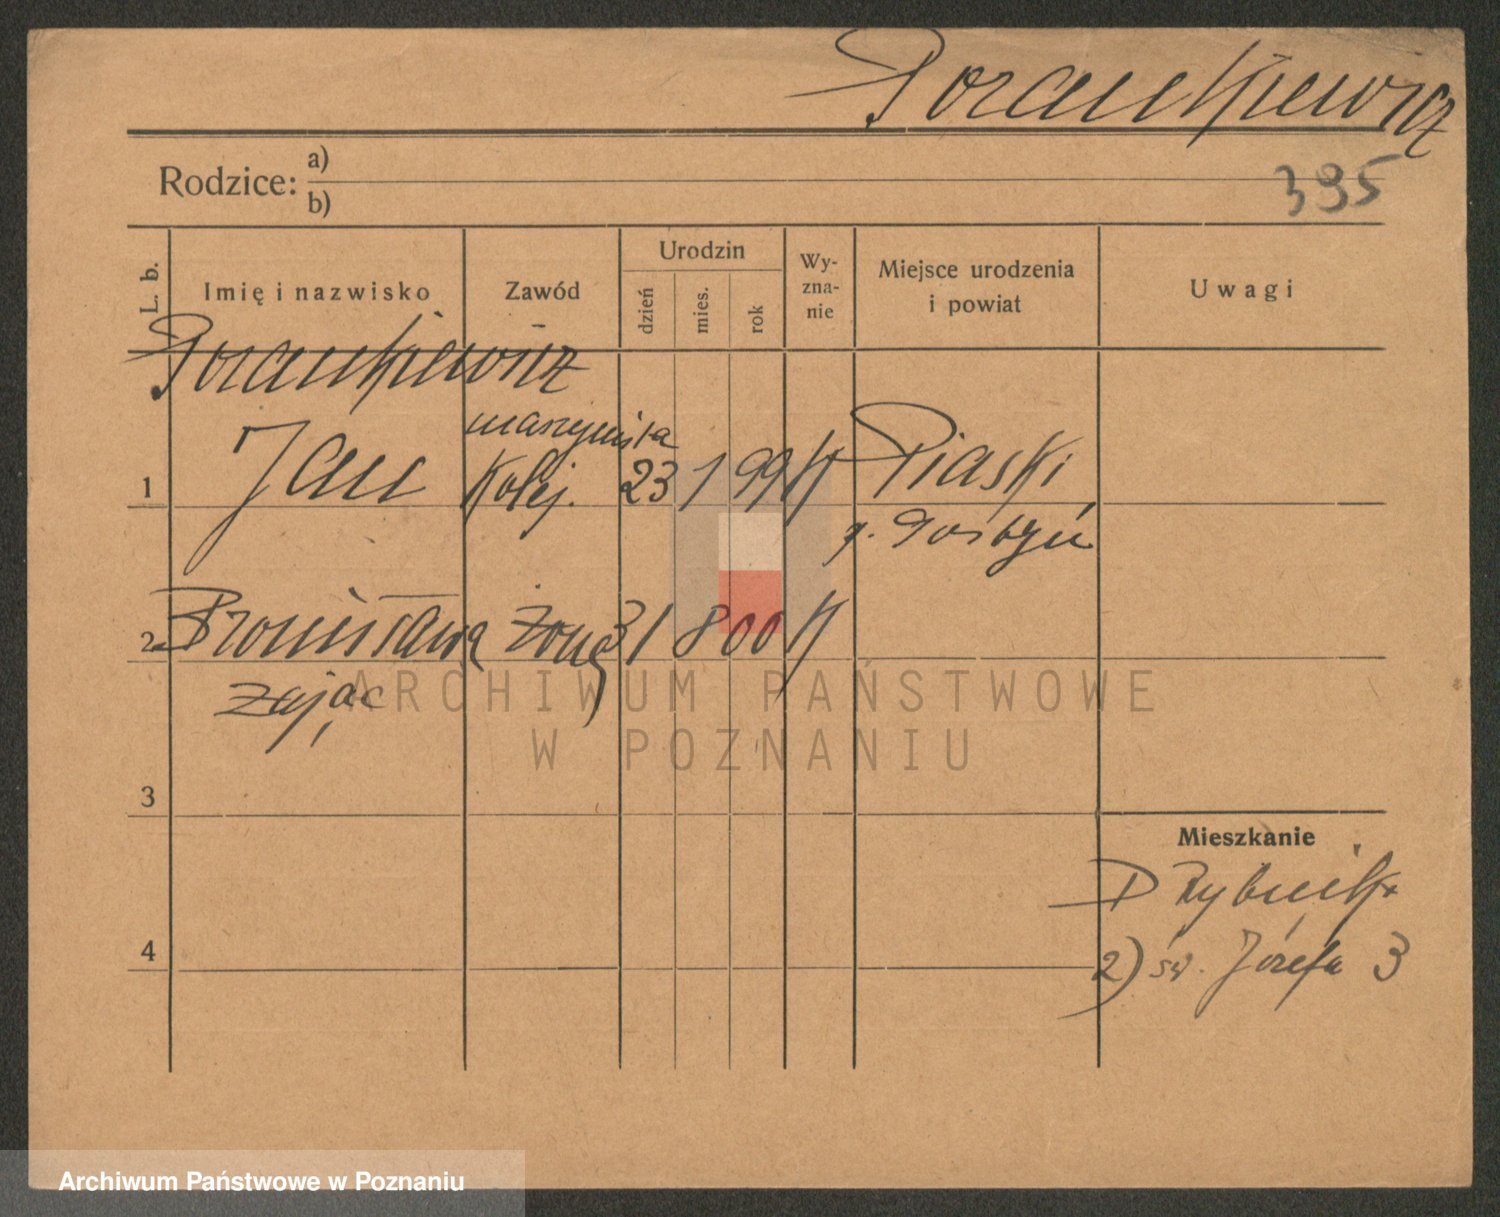 Porankiewicz
Rodzice: a)
b)
395
L. b.
Imię i nazwisko
Zawód
Urodzin
dzień
mies.
rok
Wy-
zna-
nie
Miejsce urodzenia
i powiat
Uwagi
Porankiewicz
1 Jan maszynista
kolej. 23 1 99 K Piaski
p. Gostyń
2 Bronisława żona 31 8 00 K
Zając
ARCHIWUM PAŃSTWOWE
W POZNANIU
3
Mieszkanie
1) Rybnik
4
2) św. Józefa 3
Archiwum Państwowe w Poznaniu